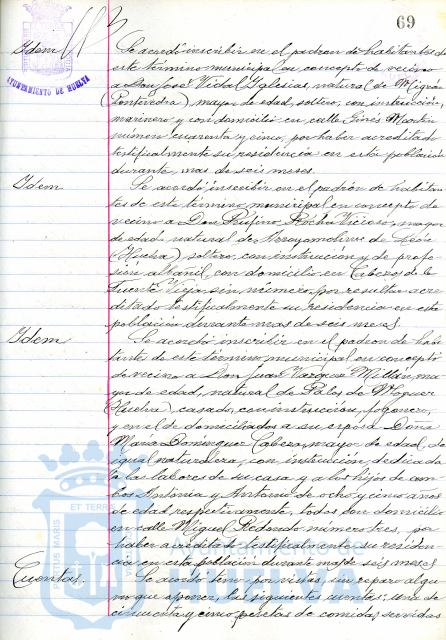 69
Idem
AYUNTAMIENTO DE HUELVA
Se acordó inscribir en el padron de habitantes de
este término municipal en concepto de vecino
a Don José Vidal Yglesias, natural de
(Pontevedra) mayor de edad, soltero, con instrucción,
marinero y con domicilio en calle Ginés Martin
número cuarenta y cinco, por haber acreditado
testifialmente su residencia en esta población
durante mas de seis meses.
Idem
Se acordó inscribir en el padrón de habitan-
tes de este término municipal en concepto de
vecino a Don Rufino Rocha Vicioso, mayor
de edad, natural de Arroyomolinos de León
(Huelva) soltero, con instrucción y de profe-
sión albañil, con domicilio en Cabezo de la
Fuente Vieja sin número, por resultar acre-
ditado testifialmente su residencia en esta
población durante mas de seis meses.
Idem
Se acordó inscribir en el padron de habi-
tantes de este término municipal en concepto
de vecino a Don Juan Vazquez Millán, ma-
yor de edad, natural de Palos de Moguer
(Huelva) casado, con instrucción, fogonero,
y en el de domiciliados a su esposa Doña
Maria Dominguez Cabeza, mayor de edad, de
igual naturaleza, con instrucción, dedicada
a las labores de su casa y a los hijos de am-
bos Antonia y Antonio de ocho y cinco años
de edad, respectivamente, todos con domicilio
en calle Miguel Redondo número tres, por
haber acreditado testifialmente su residen-
cia en esta población durante mas de seis meses.
Cuentas.
Se acordó tener por vistas, sin reparo algu-
no que oponer, las siguientes cuentas: Una de
cincuenta y cinco pesetas de comidas servidas
PORTUS MARIS
ET TERRÆ
Ayuntamiento de
HUELVA